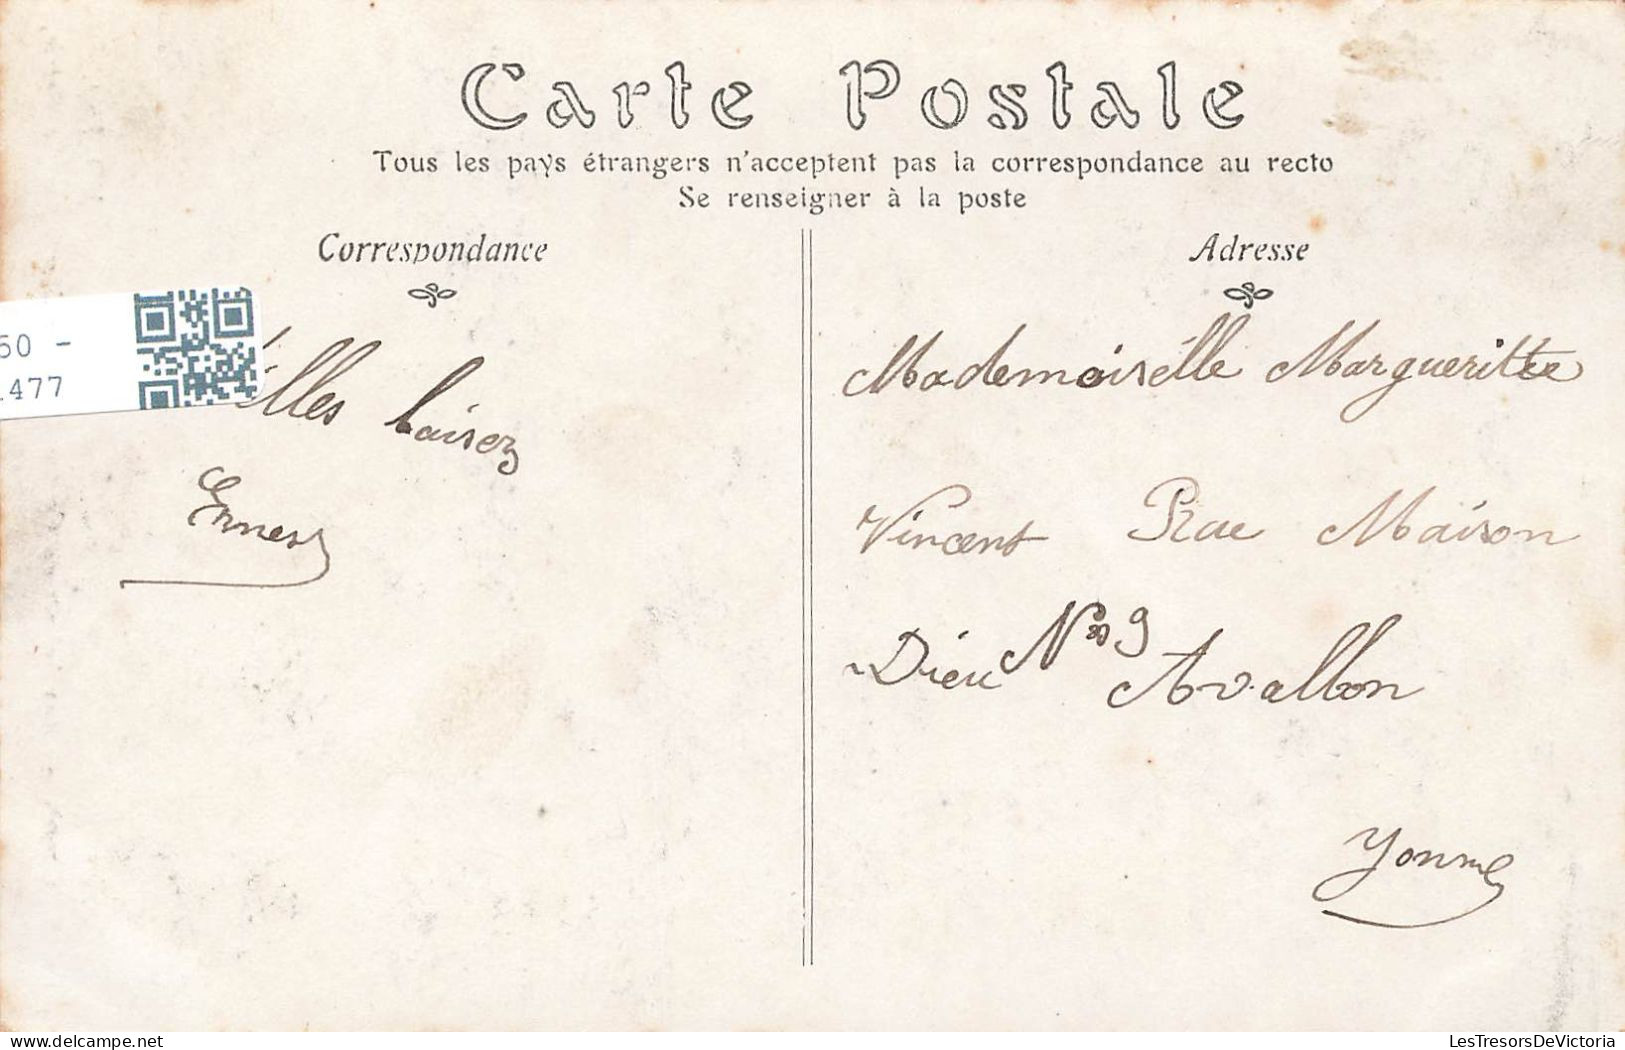 Carte Postale
Tous les pays étrangers n'acceptent pas la correspondance au recto
Se renseigner à la poste
Correspondance
Adresse
50 -
1477
illes baisez
Ernest
Mademoisélle Margueritte
Vincent Rue Maison
Dieu No 9 Avallon
Yonne
LesTresorsDeVictoria